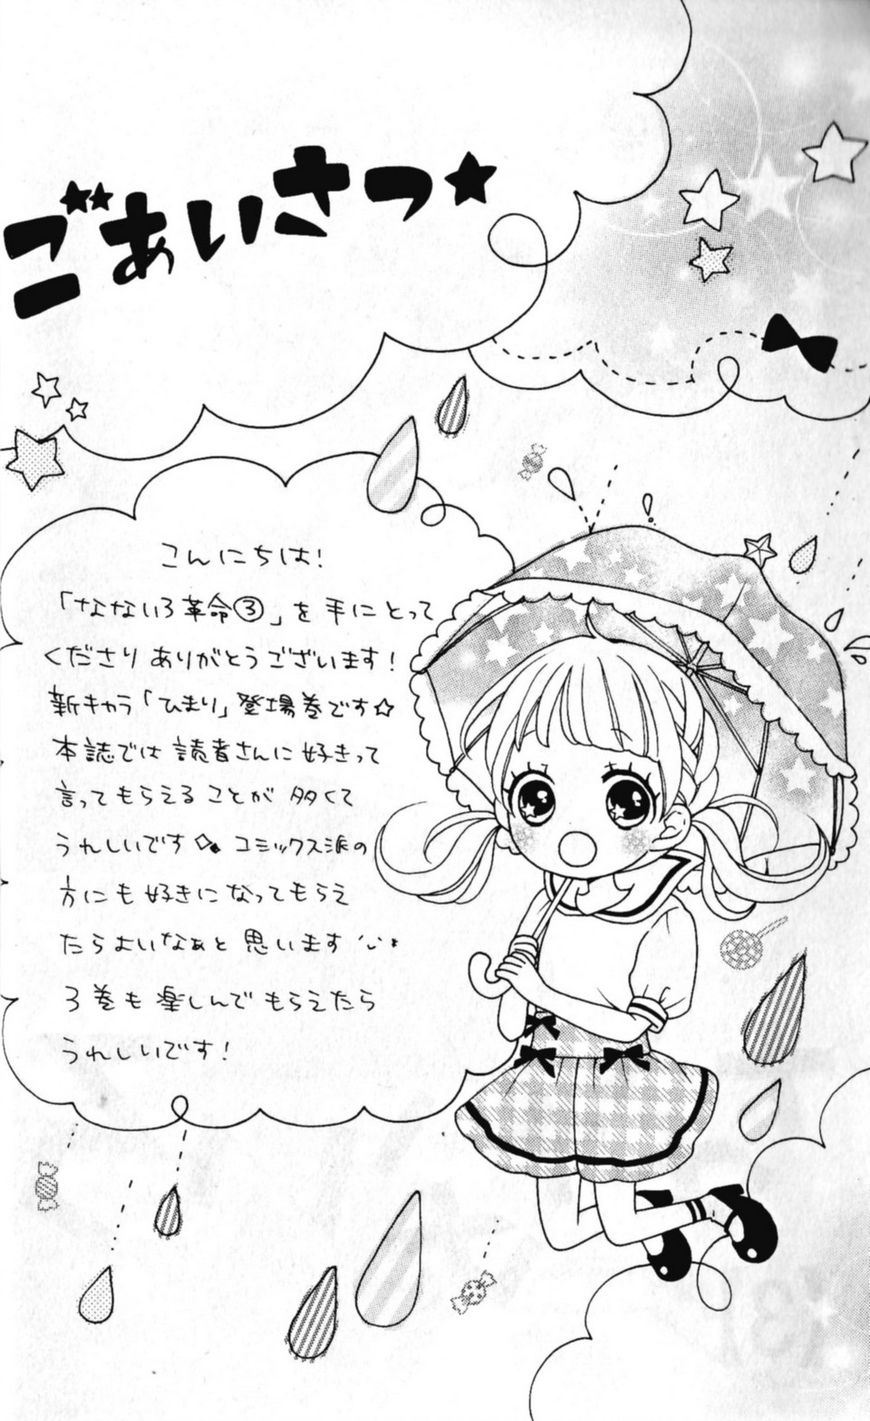 ごあいさつ★
こんにちは!
「なないろ革命③」を手にとって
くださりありがとうございます!
新キャラ「ひまり」登場巻です☆
本誌では読者さんに好きって
言ってもらえることが多くて
うれしいです☆。コミックス派の
方にも好きになってもらえ
たらよいなぁと思います
3巻も楽しんでもらえたら
うれしいです!